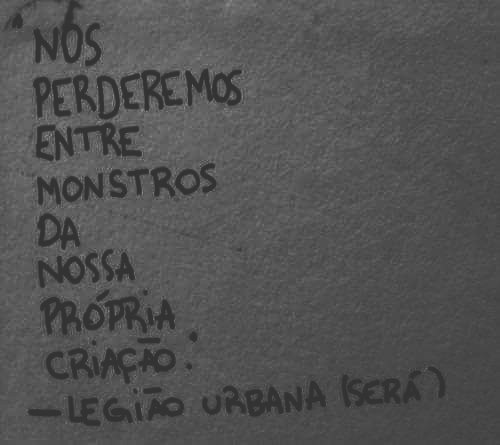 "NÓS
PERDEREMOS
ENTRE
MONSTROS
DA
NOSSA
PRÓPRIA
CRIAÇÃO."
— LEGIÃO URBANA (SERÁ)